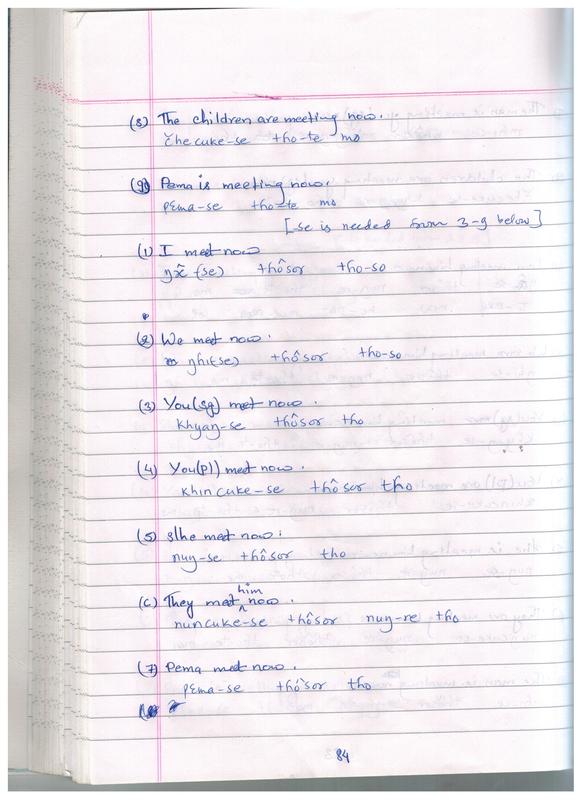 (8) The children are meeting now.
čhecuke-se tho-te mo
(9) Pema is meeting now.
pɛma-se tho-te mo
[se is needed from 3-9 below]
(1) I met now
ŋɤ̃ (se) thôsor tho-so
(2) We met now.
ŋhi(se) thôsor tho-so
(3) You(sg) met now.
khyaŋ-se thôsor tho
(4) You(pl) met now.
khincuke-se thôsor tho
(5) s/he met now.
nuŋ-se thôsor tho
him
(6) They met ^ now.
nuncuke-se thôsor nuŋ-re tho
(7) Pema met now.
pɛma-se thôsor tho
84